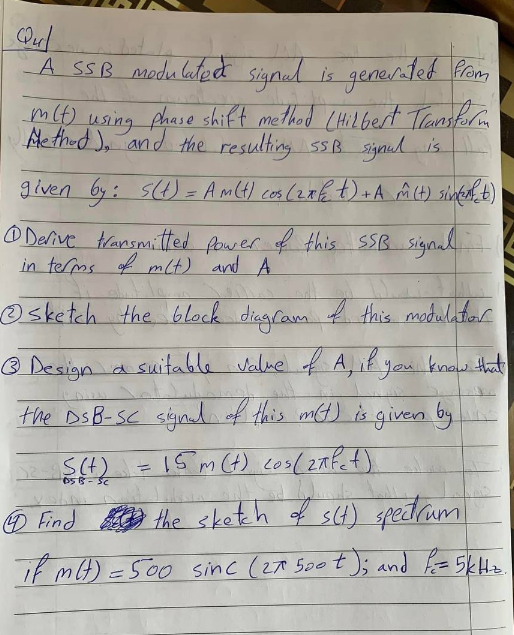 Qu1
A SSB modulated signal is generated from
m(t) using phase shift method (Hilbert Transform
Method), and the resulting SSB signal is
given by: s(t) = A m(t) cos(2πfc t) + A m̂(t) sin(2πfc t)
① Derive transmitted power of this SSB signal
in terms of m(t) and A
② sketch the block diagram of this modulator
③ Design a suitable value of A, if you know that
the DSB-SC signal of this m(t) is given by
S(t) = 15 m(t) cos(2πfc t)
DSB-SC
④ Find the sketch of s(t) spectrum
if m(t) = 500 sinc (2π 500 t); and fc = 5kHz.